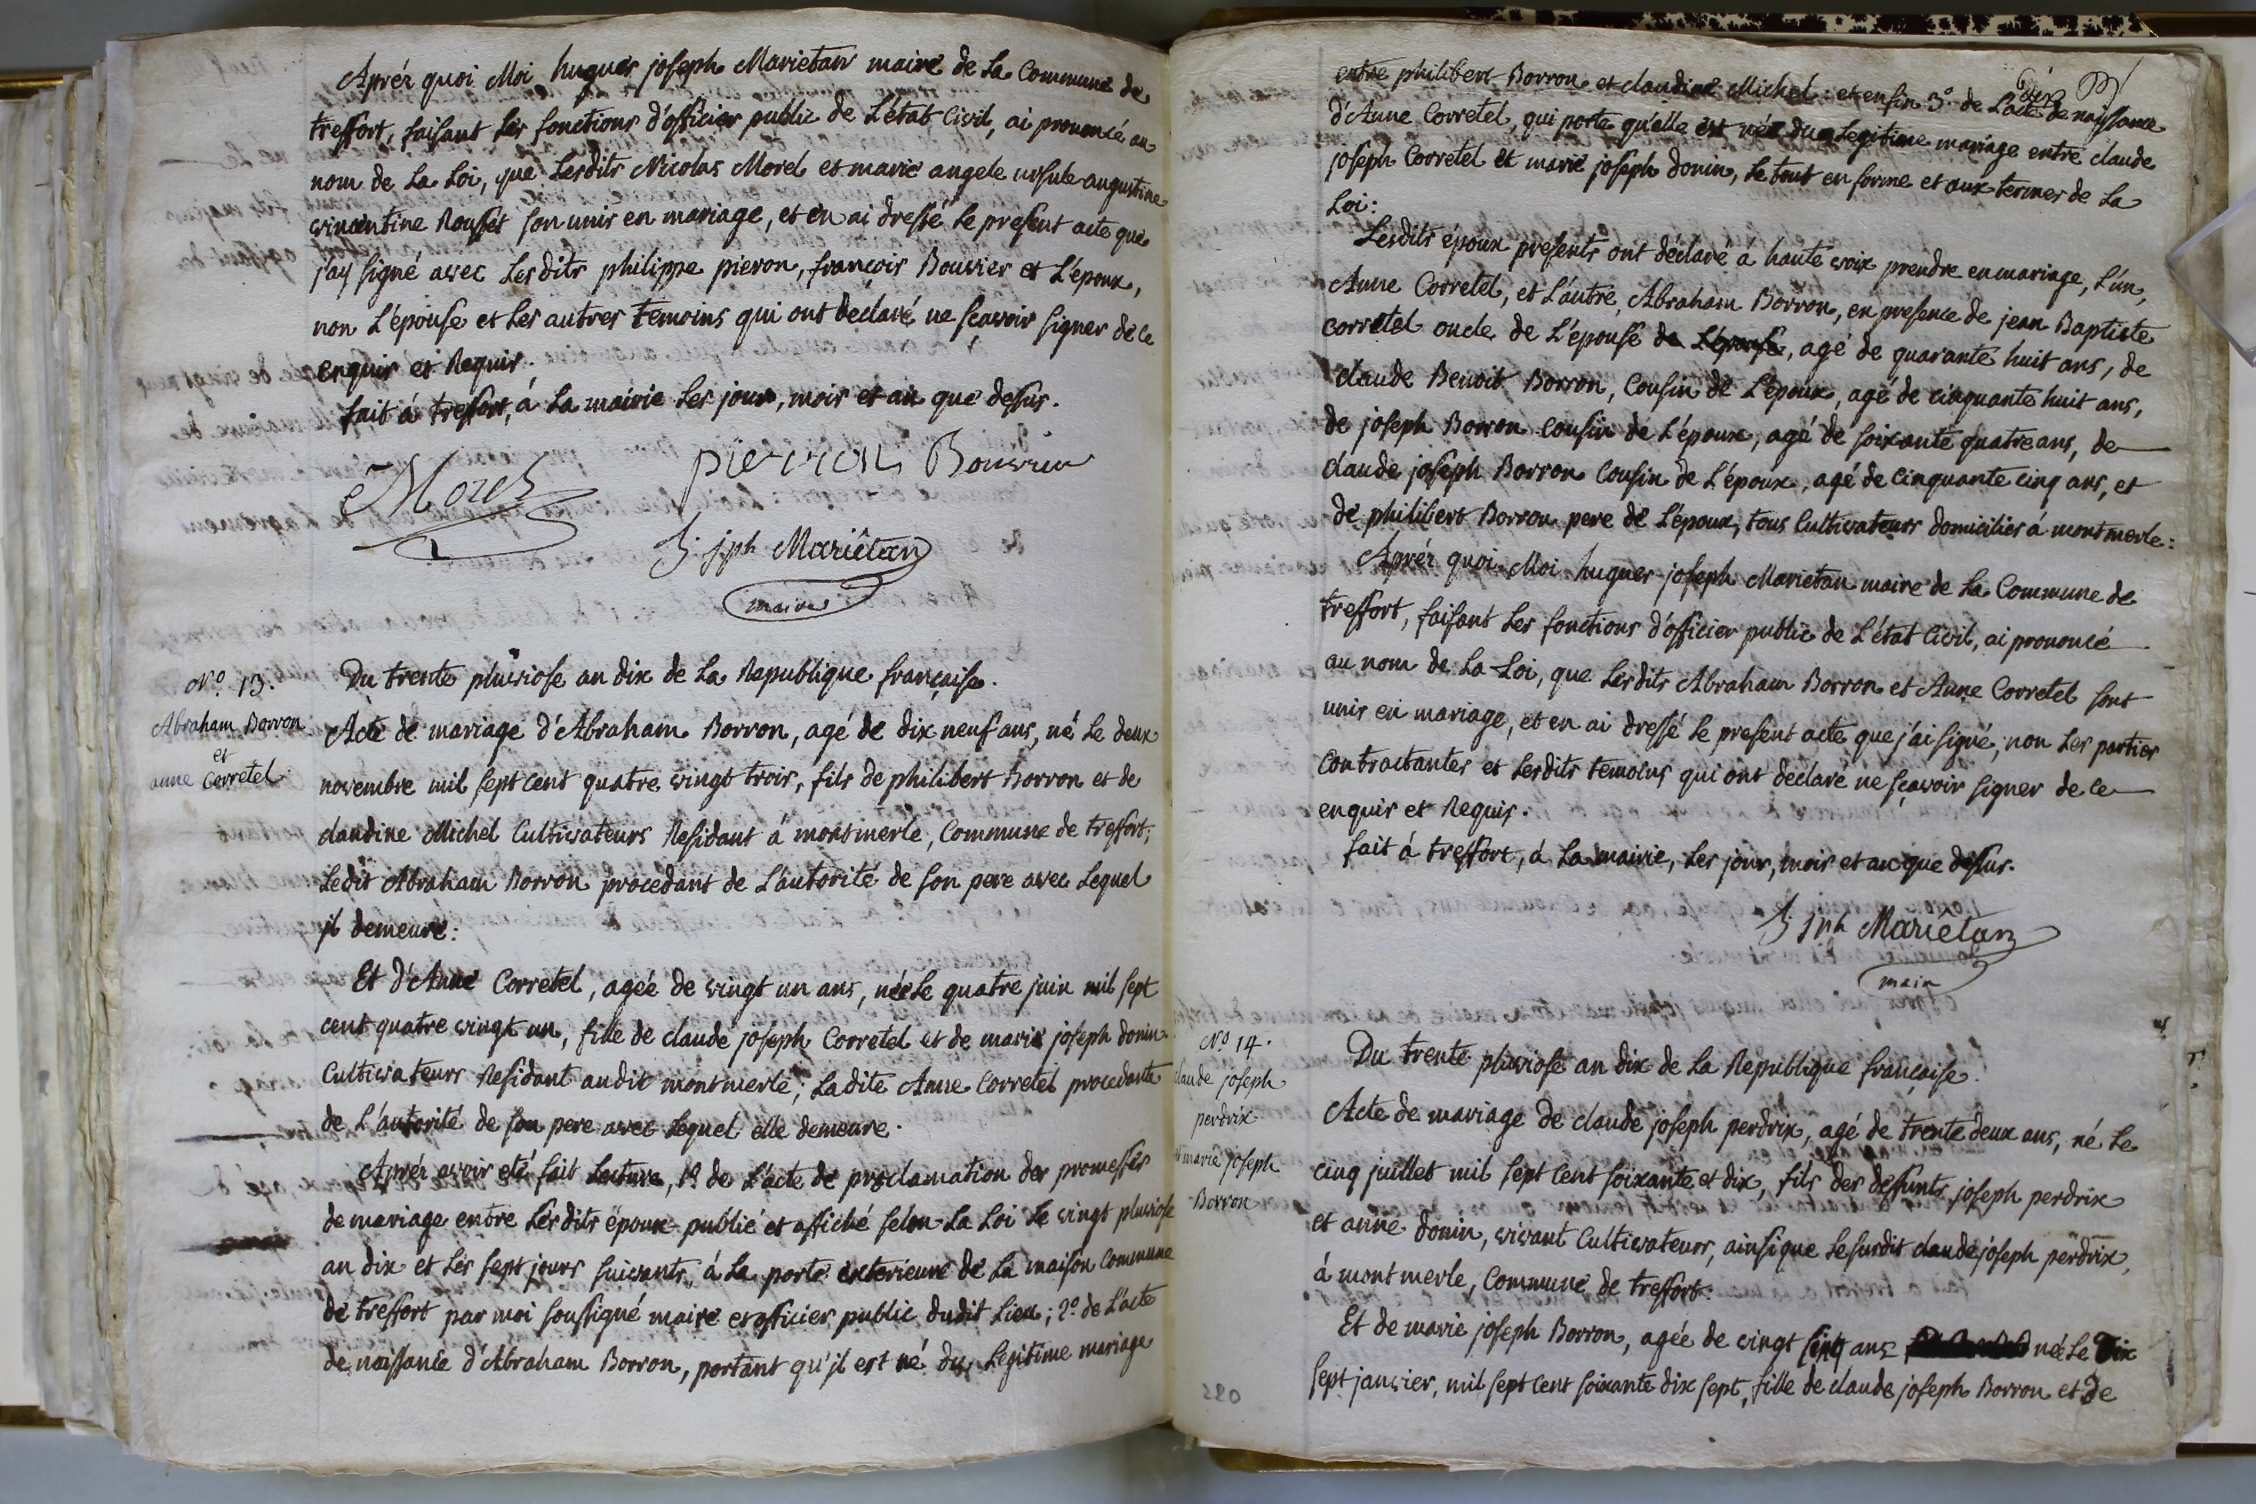 Aprér quoi Moi hugues joseph Marietan maire de La Commune de
treffort, faisant Les fonctions d'officier public de L'état Civil, ai prononcé au
nom de La Loi, que Lesdits Nicolas Morel et marie angele ursule augustine
vincentine Rousset son unis en mariage, et en ai dressé Le present acte que
j'ay signé avec Lesdits philippe pieron, françois Bouvier et L'époux,
non L'épouse et Les autres temoins qui ont declaré ne sçavoir signer de ce
enquis et Requis.
fait á treffort, á La mairie Les jour, mois et an que dessus.
Morel pierron Bouvier
h jph Mariêtan
maire
No. 13.
Abraham Borron
et
anne Corretel
Du trente pluviose an dix de La Republique française.
Acte de mariage d'Abraham Borron, agé de dix neuf ans, né Le deux
novembre mil sept cent quatre vingt trois, fils de philibert Borron et de
claudine Michel Cultivateurs Residant á montmerle, Commune de treffort;
Ledit Abraham Borron procedant de L'autorité de son pere avec Lequel
il demeure:
Et d'Anne Corretel, agée de vingt un ans, née Le quatre juin mil sept
cent quatre vingt un, fille de claude joseph Corretel et de marie joseph donin
Cultivateurs Residant audit montmerle; Ladite Anne Corretel procedante
de L'autorité de son pere avec Lequel elle demeure.
Aprér avoir eté fait Lecture, 1º de L'acte de proclamation des promesses
de mariage entre Lesdits époux publié et affiché selon La Loi Le vingt pluviose
an dix et Les sept jours suivants á La porte exterieure de La maison Commune
de treffort par moi soussigné maire et officier public dudit Lieu; 2º. de L'acte
de naissance d'Abraham Borron, portant qu'il est né du Legitime mariage
entre philibert Borron et claudine Michel: et enfin 3º. de L'acte de naissance
d'Anne Corretel, qui porte qu'elle est née du Legitime mariage entre claude
joseph Corretel et marie joseph donin, Le tout en forme et aux termes de La
Loi:
Lesdits époux presents ont déclaré á haute voix prendre en mariage, L'un,
Anne Corretel, et L'autre, Abraham Borron, en presence de jean Baptiste
corretel oncle de L'épouse de L'épouse, agé de quarante huit ans, de
claude Benoit Borron, Cousin de L'époux, agé de cinquante huit ans,
de joseph Borron cousin de L'époux, agé de soixante quatre ans, de
claude joseph Borron Cousin de L'époux, agé de cinquante cinq ans, et
de philibert Borron pere de L'époux, tous Cultivateurs domiciliés á montmerle:
Aprér quoi Moi hugues joseph Marietan maire de La Commune de
treffort, faisant Les fonctions d'officier public de L'état Civil, ai prononcé
au nom de La Loi, que Lesdits Abraham Borron et Anne Corretel sont
unis en mariage, et en ai dressé Le present acte que j'ai signé, non Les parties
Contractantes et Lesdits temoins qui ont declaré ne sçavoir signer de ce
enquis et Requis.
fait á treffort, á La mairie, Les jour, mois et an que dessus.
h jph Mariêtan
maire
No 14.
claude joseph
perdrix
et marie joseph
Borron
Du trente pluviose an dix de La Republique française.
Acte de mariage de claude joseph perdrix, agé de trente deux ans, né Le
cinq juillet mil sept cent soixante et dix, fils des deffunts joseph perdrix
et anne donin, vivant Cultivateurs, ainsi que Le susdit claude joseph perdrix,
á montmerle, Commune de treffort.
Et de marie joseph Borron, agée de vingt cinq ans née Le Dix
sept janvier, mil sept cent soixante dix sept, fille de claude joseph Borron et de